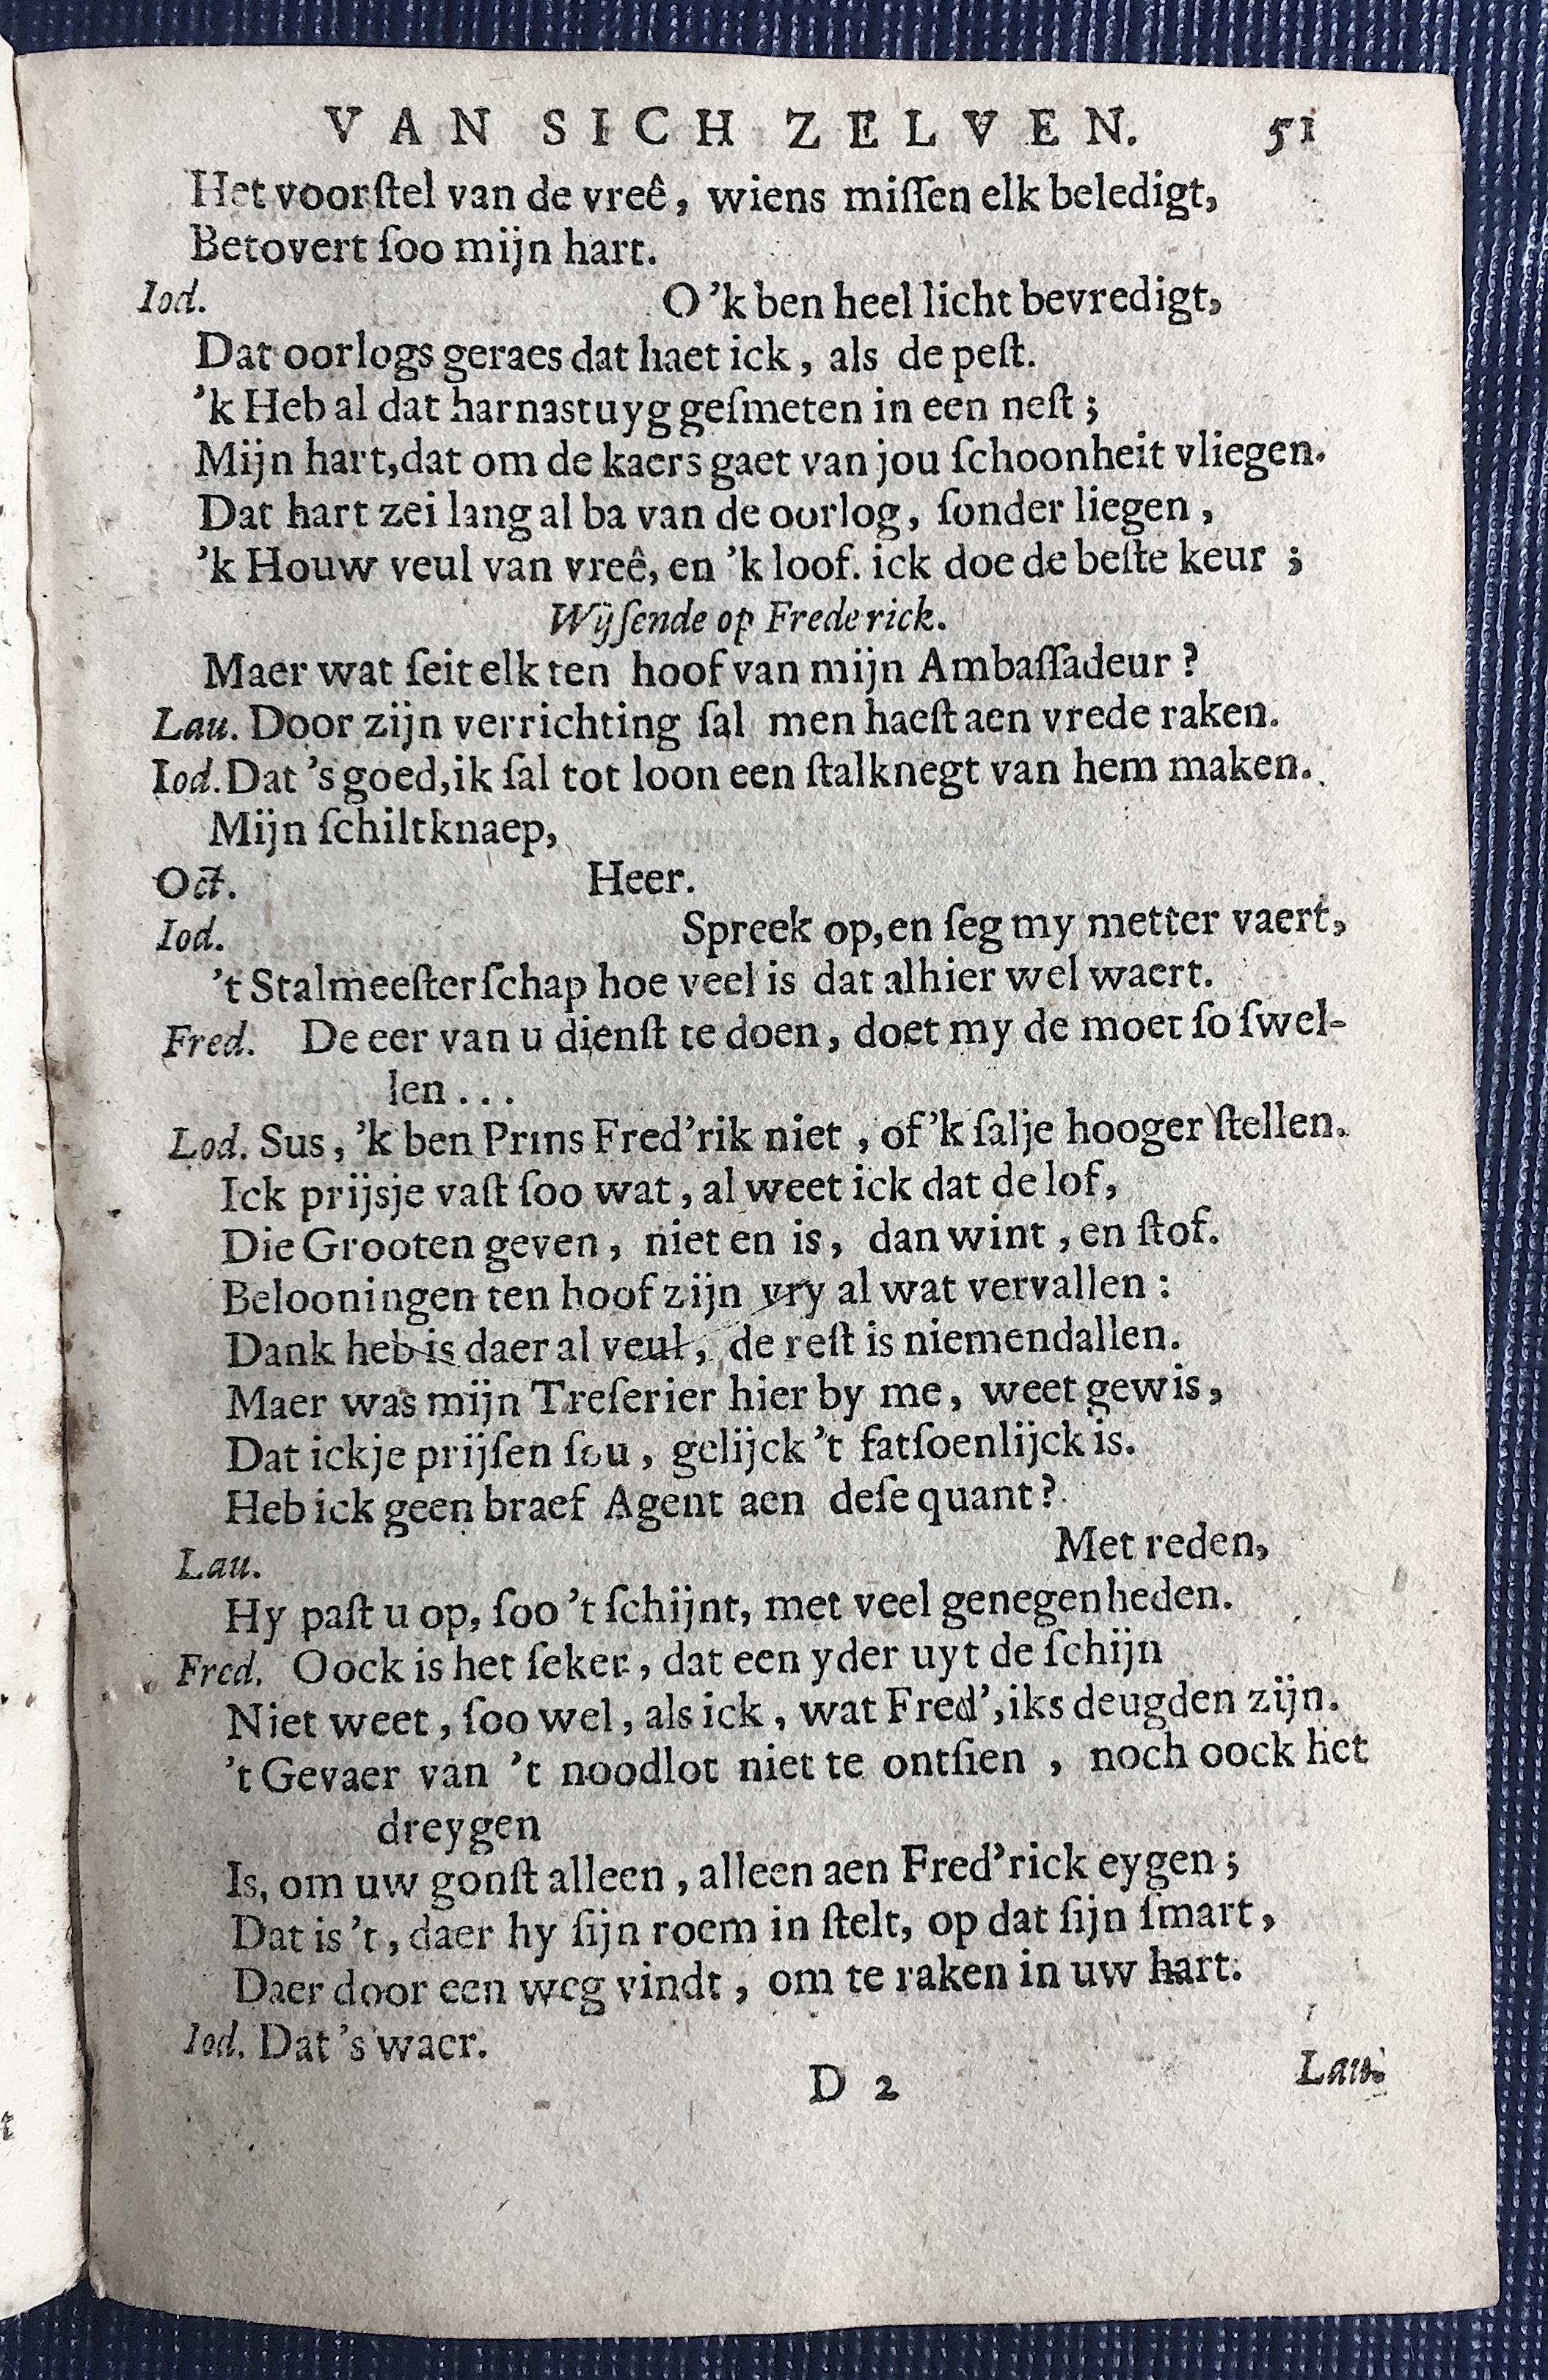 VAN SICH ZELVEN. 51
Het voorſtel van de vreê, wiens miſſen elk beledigt,
Betovert ſoo mijn hart.
Iod. O 'k ben heel licht bevredigt,
Dat oorlogs geraes dat haet ick, als de peſt.
'k Heb al dat harnastuyg geſmeten in een neſt;
Mijn hart,dat om de kaers gaet van jou ſchoonheit vliegen.
Dat hart zei lang al ba van de oorlog, ſonder liegen,
'k Houw veul van vreê, en 'k loof. ick doe de beſte keur ;
Wijſende op Frederick.
Maer wat ſeit elk ten hoof van mijn Ambaſſadeur?
Lau. Door zijn verrichting ſal men haeſt aen vrede raken.
Iod. Dat 's goed,ik ſal tot loon een ſtalknegt van hem maken.
Mijn ſchiltknaep,
Oct. Heer.
Iod. Spreek op,en ſeg my metter vaert,
't Stalmeeſterſchap hoe veel is dat alhier wel waert.
Fred. De eer van u dienſt te doen, doet my de moet ſo ſwel-
len...
Lod. Sus, 'k ben Prins Fred'rik niet, of 'k ſalje hooger ſtellen.
Ick prijsje vaſt ſoo wat, al weet ick dat de lof,
Die Grooten geven, niet en is, dan wint, en ſtof.
Belooningen ten hoof zijn vry al wat vervallen:
Dank heb is daer al veul, de reſt is niemendallen.
Maer was mijn Treſerier hier by me, weet gewis,
Dat ickje prijſen ſou, gelijck 't fatſoenlijck is.
Heb ick geen braef Agent aen deſe quant?
Lau. Met reden,
Hy paſt u op, ſoo 't ſchijnt, met veel genegenheden.
Fred. Oock is het ſeker, dat een yder uyt de ſchijn
Niet weet, ſoo wel, als ick, wat Fred',iks deugden zijn.
't Gevaer van 't noodlot niet te ontſien, noch oock het
dreygen
Is, om uw gonſt alleen, alleen aen Fred'rick eygen;
Dat is 't, daer hy ſijn roem in ſtelt, op dat ſijn ſmart,
Daer door een weg vindt, om te raken in uw hart.
Iod. Dat 's waer.
D 2 Lau.